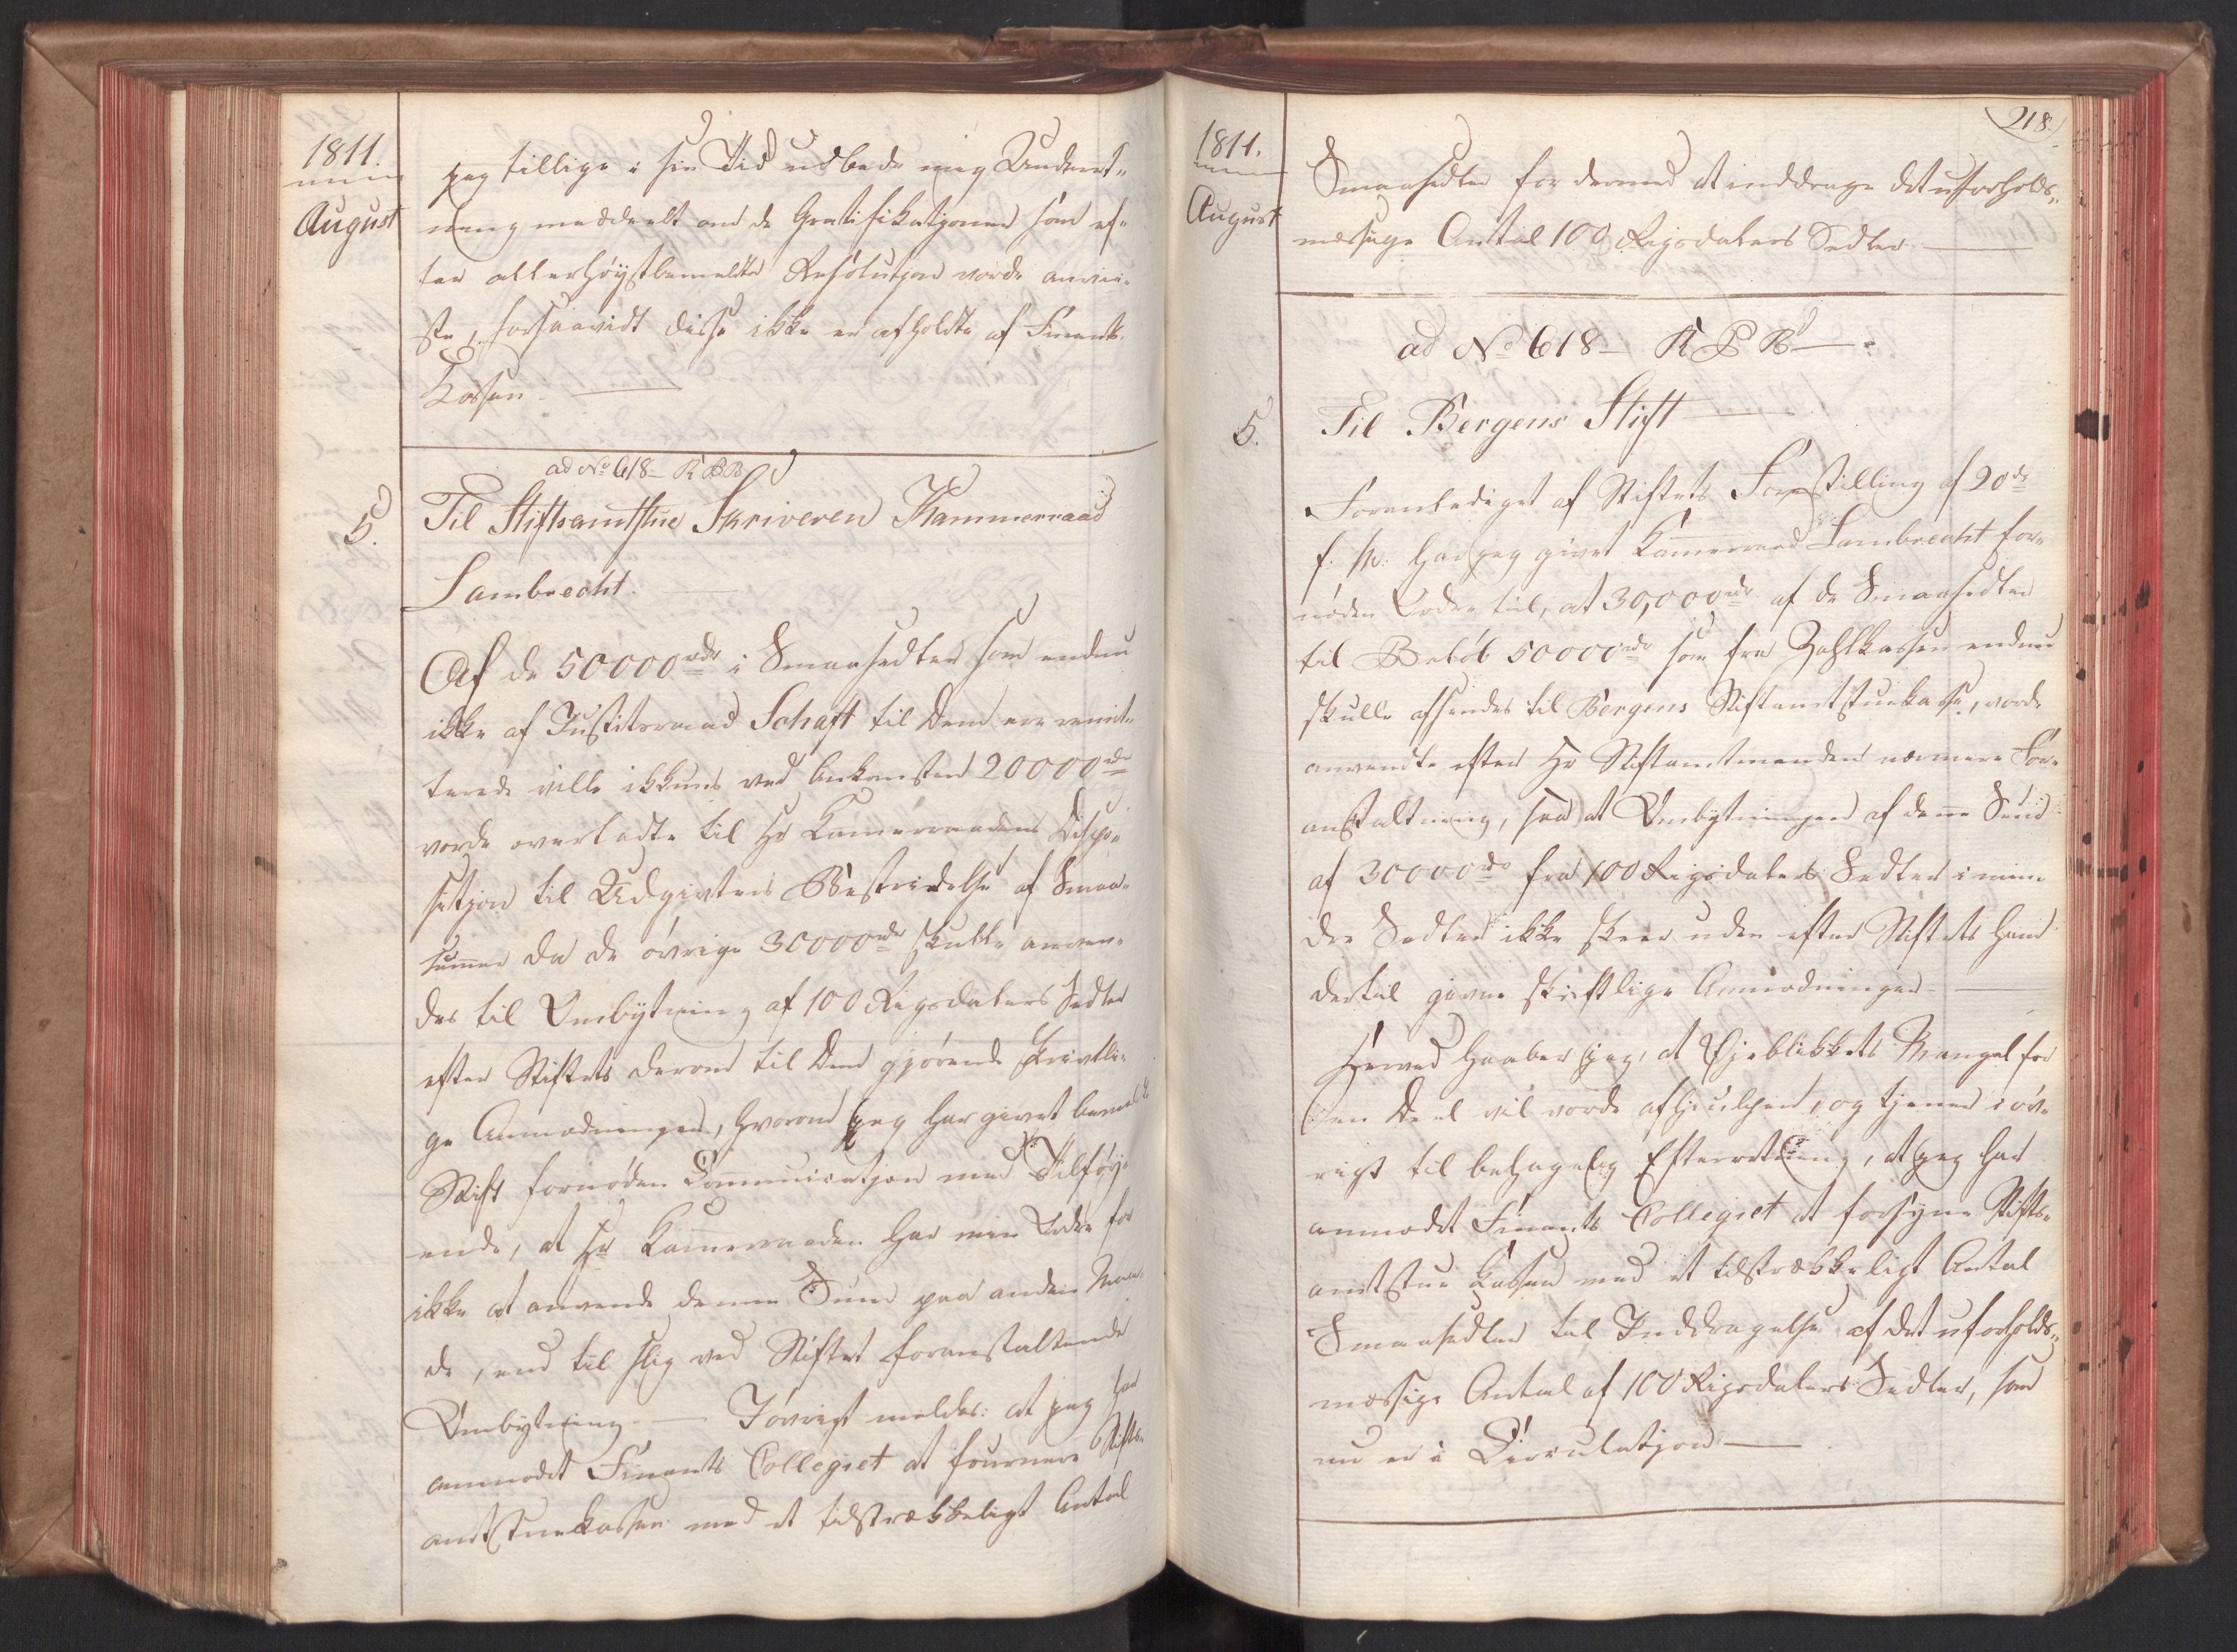 1811.
August
jeg tillige i sin Tid udbede mig Underret-
ning meddeelt om de Gratifikatjoner som ef-
ter allerhøystbemeldte Resolutjon vorde anvii-
ste, forsaavidt disse ikke er afholdte af Finants-
Kassen.
ad No 618- K B B
5.
Til Stiftsamtstue Skriveren Kammerraad
Lambrecht.
Af de 50000 rdr i Smaasedler som endnu
ikke af Justitsraad Schaft til Dem ere remit-
terede ville ikkuns ved Ankomsten 20000 rdr
vorde overladte til Hr Kammerraadens Dispo-
sitjon til Udgivters Bestridelse af Smaa-
summer da de øvrige 30000 rdr skulle anven-
des til Ombytning af 100 Rigsdalers Sedler
efter Stiftets derom til Dem gjørende skrivtli-
ge Anmodninger, hvorom jeg har givet bemeldte
Stift fornøden Communicatjon med Tilføy-
ende, at Hr Kammerraaden har min Ordre for
ikke at anvende denne Sum paa anden Maa-
de, end til slig ved Stiftet foranstaltende
Ombytning. — Iøvrigt meldes: at jeg har
anmodet Finants Collegiet at fournere Stifts-
amtstuekassen med et tilstrækkeligt Antal
218.
1811.
August
Smaasedler for dermed at inddrage det uforholds-
mæssige Antal 100 Rigsdalers Sedler
ad No 618- K B B
5.
Til Bergens Stift
Foranlediget af Stiftets Forestilling af 20de
f. M. har jeg givet Kammerraad Lambrecht for-
nøden Ordre til, at 30,000 rdr af de Smaasedler
til Beløb 50000 rdr som fra Zahlkassen endnu
skulle afsendes til Bergens Stiftamtstuekasse, vorde
anvendte efter Hr Stiftamtmandens nærmere For-
anstaltning, saa at Ombytningen af denne Sum
af 30000 rdr fra 100 Rigsdalers Sedler i min-
dre Sedler ikke skeer uden efter Stiftets ham
dertil givne skriftlige Anmodninger
Herved haaber jeg, at Øjeblikkets Mangel for
en Deel vil vorde afhjulpen, og tjener i øv-
rigt til behagelig Efterretning, at jeg har
anmodet Finants Collegiet at forsyne Stifts-
amtstue Kassen med et tilstrækkeligt Antal
Smaasedler til Inddragelse af det uforholds-
mæssige Antal af 100 Rigsdalers Sedler, som
nu er i Circulatjon